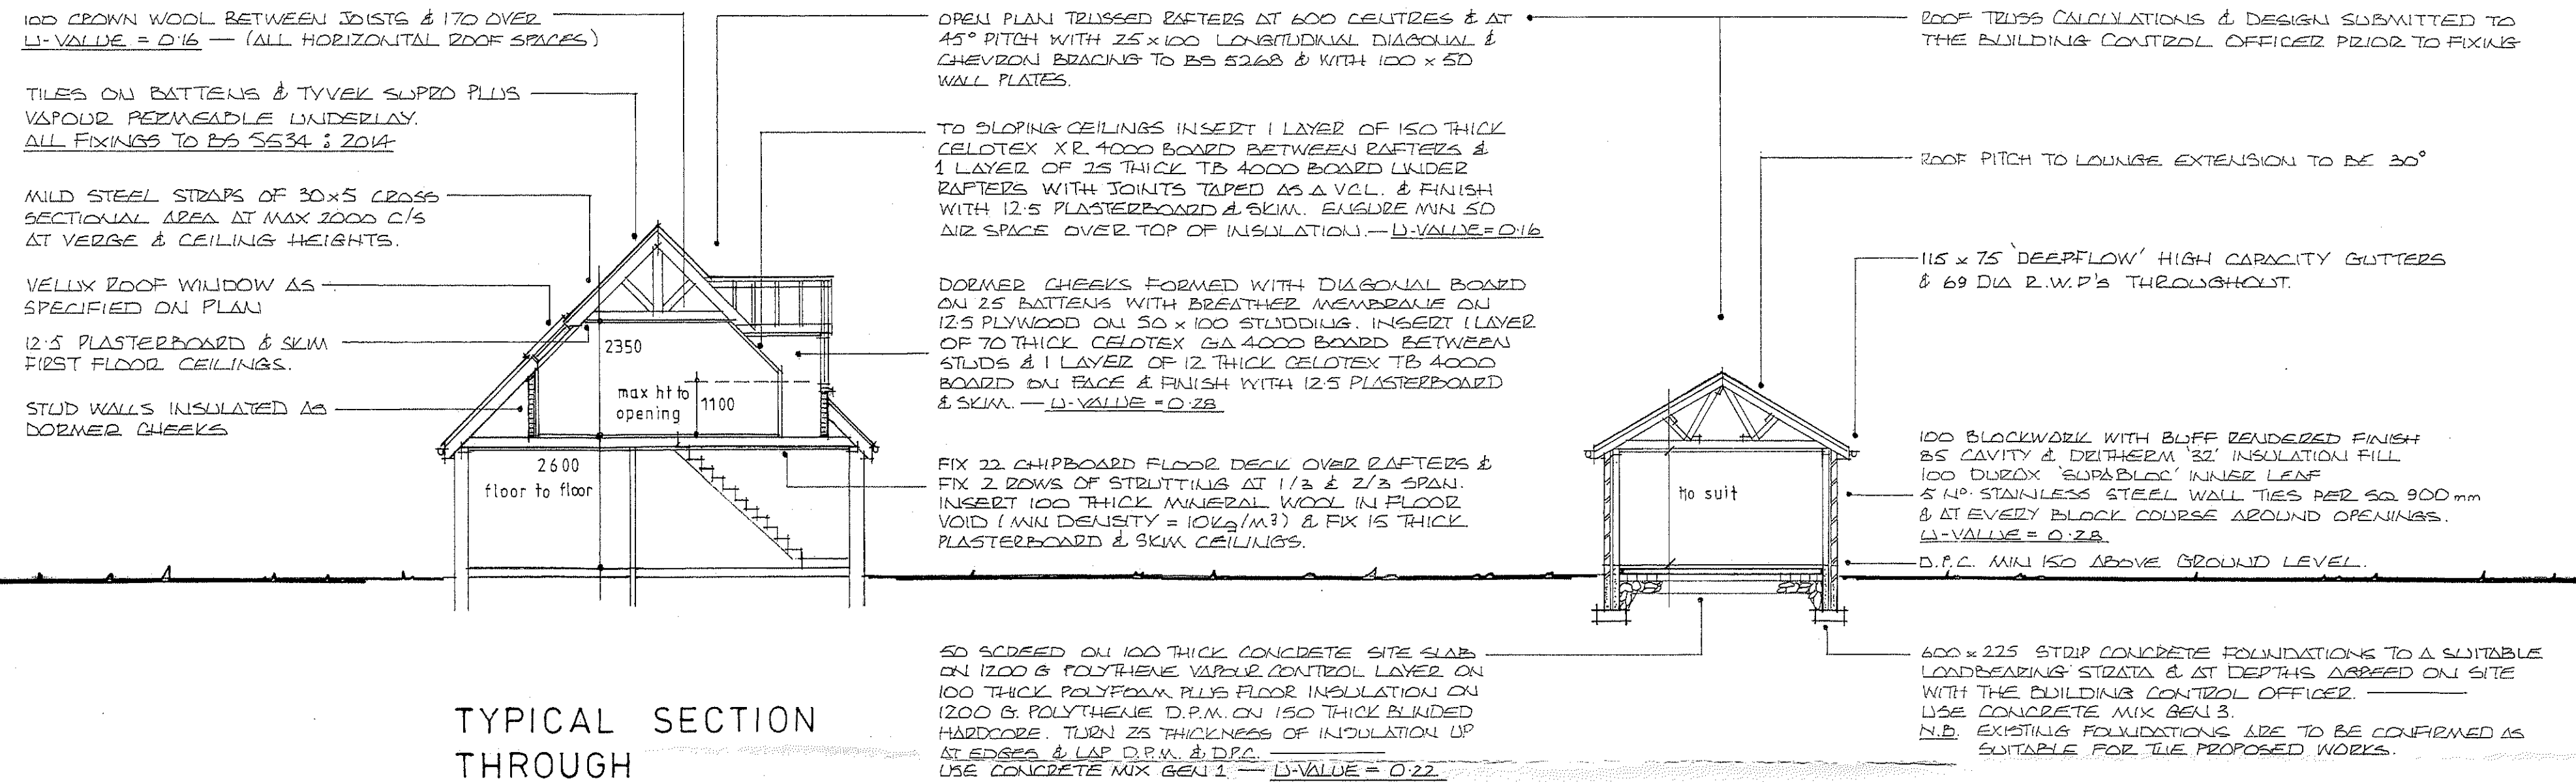 100 CROWN WOOL BETWEEN JOISTS & 170 OVER
U-VALUE = 0·16 — (ALL HORIZONTAL ROOF SPACES)
TILES ON BATTENS & TYVEK SUPRO PLUS
VAPOUR PERMEABLE UNDERLAY.
ALL FIXINGS TO BS 5534 : 2014
MILD STEEL STRAPS OF 30x5 CROSS
SECTIONAL AREA AT MAX 2000 C/S
AT VERGE & CEILING HEIGHTS.
VELUX ROOF WINDOW AS
SPECIFIED ON PLAN
12·5 PLASTERBOARD & SKIM
FIRST FLOOR CEILINGS.
STUD WALLS INSULATED AS
DORMER CHEEKS
2350
max ht to
opening
1100
2600
floor to floor
TYPICAL SECTION
THROUGH
OPEN PLAN TRUSSED RAFTERS AT 600 CENTRES & AT
45° PITCH WITH 25x100 LONGITUDINAL DIAGONAL &
CHEVRON BRACING TO BS 5268 & WITH 100 x 50
WALL PLATES.
TO SLOPING CEILINGS INSERT 1 LAYER OF 150 THICK
CELOTEX XR 4000 BOARD BETWEEN RAFTERS &
1 LAYER OF 25 THICK TB 4000 BOARD UNDER
RAFTERS WITH JOINTS TAPED AS A VCL. & FINISH
WITH 12·5 PLASTERBOARD & SKIM. ENSURE MIN 50
AIR SPACE OVER TOP OF INSULATION.— U-VALUE=0·16
DORMER CHEEKS FORMED WITH DIAGONAL BOARD
ON 25 BATTENS WITH BREATHER MEMBRANE ON
12·5 PLYWOOD ON 50 x 100 STUDDING. INSERT 1 LAYER
OF 70 THICK CELOTEX GA 4000 BOARD BETWEEN
STUDS & 1 LAYER OF 12 THICK CELOTEX TB 4000
BOARD ON FACE & FINISH WITH 12·5 PLASTERBOARD
& SKIM. — U-VALUE = 0·28
FIX 22 CHIPBOARD FLOOR DECK OVER RAFTERS &
FIX 2 ROWS OF STRUTTING AT 1/3 & 2/3 SPAN.
INSERT 100 THICK MINERAL WOOL IN FLOOR
VOID (MIN DENSITY = 10Kg/M³) & FIX 15 THICK
PLASTERBOARD & SKIM CEILINGS.
50 SCREED ON 100 THICK CONCRETE SITE SLAB
ON 1200 G POLYTHENE VAPOUR CONTROL LAYER ON
100 THICK POLYFOAM PLUS FLOOR INSULATION ON
1200 G. POLYTHENE D.P.M. ON 150 THICK BLINDED
HARDCORE. TURN 25 THICKNESS OF INSULATION UP
AT EDGES & LAP D.P.M. & D.P.C.
USE CONCRETE MIX GEN 1 — U-VALUE = 0·22
ROOF TRUSS CALCULATIONS & DESIGN SUBMITTED TO
THE BUILDING CONTROL OFFICER PRIOR TO FIXING
ROOF PITCH TO LOUNGE EXTENSION TO BE 30°
115 x 75 'DEEPFLOW' HIGH CAPACITY GUTTERS
& 69 DIA R.W.P's THROUGHOUT.
to suit
100 BLOCKWORK WITH BUFF RENDERED FINISH
85 CAVITY & DRITHERM '32' INSULATION FILL
100 DUROX 'SUPABLOC' INNER LEAF
5 Nº. STAINLESS STEEL WALL TIES PER SQ 900 mm
& AT EVERY BLOCK COURSE AROUND OPENINGS.
U-VALUE = 0·28
D.P.C. MIN 150 ABOVE GROUND LEVEL.
600 x 225 STRIP CONCRETE FOUNDATIONS TO A SUITABLE
LOADBEARING STRATA & AT DEPTHS AGREED ON SITE
WITH THE BUILDING CONTROL OFFICER.
USE CONCRETE MIX GEN 3.
N.B. EXISTING FOUNDATIONS ARE TO BE CONFIRMED AS
SUITABLE FOR THE PROPOSED WORKS.